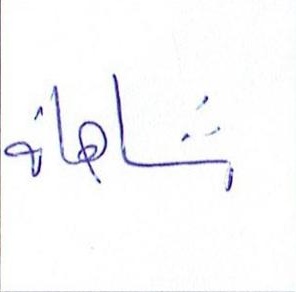 شاهانه